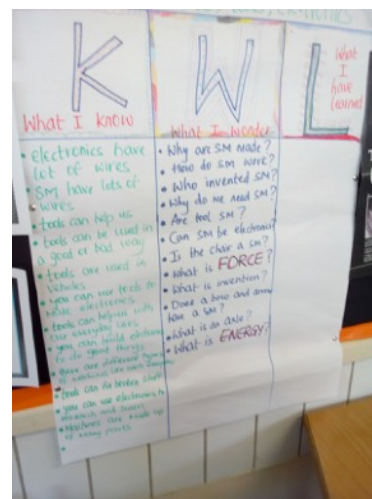 K
What I know
• electronics have
lot of wires.
• SM have lots of
wires.
• tools can help us
• tools can be used in
a good or bad way
• tools are used in
vehicles
• you can use tools to
make electronics.
• tools can help us with
our everyday lives
• you can build electronics
to do good things.
• there are different types
of machines
• tools can fix broken stuff
• you can use electronics to
research and
• Machines are made up
of many parts
W
What I Wonder
• Why are SM made?
• How do SM work?
• Who invented SM?
• Why do we need SM?
• Are tool SM?
• Can SM be electronic?
• Is the chair a SM?
• What is FORCE?
• What is invention?
• Does a bow and arrow
have a SM?
• What is an axle?
• What is ENERGY?
L
What
I
have
learned